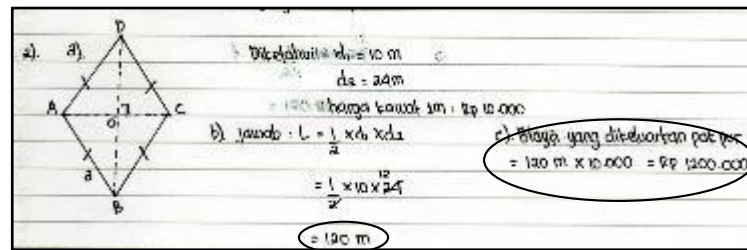 2). a). D
A C
O
a
B
Diketahui : d₁ = 10 m
d₂ = 24m
harga kawat 1m : Rp 10.000
b) Jawab : L = 1/2 x d₁ x d₂
= 1/2 x 10 x 24 12
= 120 m
c). Biaya yang dikeluarkan pak
= 120 m x 10.000 = Rp 1200.000